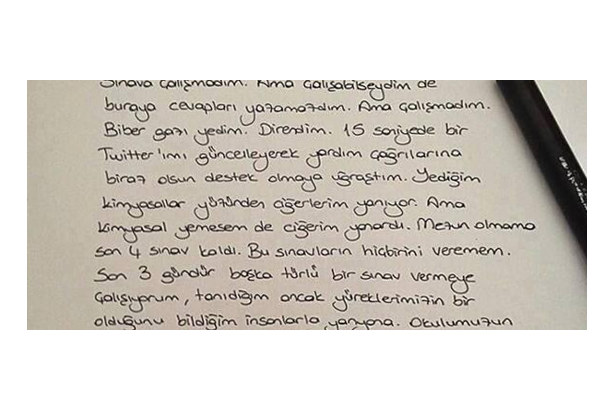 Sınava çalışmadım. Ama çalışabilseydim de
buraya cevapları yazamazdım. Ama çalışmadım.
Biber gazı yedim. Direndim. 15 saniyede bir
Twitter'ımı güncelleyerek yardım çağrılarına
biraz olsun destek olmaya uğraştım. Yediğim
kimyasallar yüzünden ciğerlerim yanıyor. Ama
kimyasal yemesem de ciğerim yanardı. Mezun olmama
son 4 sınav kaldı. Bu sınavların hiçbirini veremem.
Son 3 gündür başka türlü bir sınav vermeye
çalışıyorum, tanıdığım ancak yüreklerimizin bir
olduğunu bildiğim insanlarla yanyana. Okulumuzun